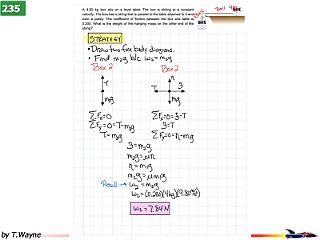 235
A 4.00 kg box sits on a fixed table. The box is sliding at a constant
velocity. The box has a string that is parallel to the table attached to it and
over a pulley. The coefficient of friction between the box and table is
0.200. What is the weight of the hanging mass on the other end of the
string?
STRATEGY
•Draw two free body diagrams.
• Find m₂g b/c w₂ = m₂g
Box 2 Box 2
T
m₂g
n
T 3
m₁g
ΣFₓ=0 ΣFₓ=0=3-T
ΣFᵧ=0=T-m₂g 3=T
T=m₂g ΣFᵧ=0=n-m₁g
3=m₂g
m₂g=μn
n=m₁g
m₂g=μm₁g
Recall → w₂=m₂g
w₂=(0.200)(4kg)(9.80
w₂=7.84N
by T.Wayne